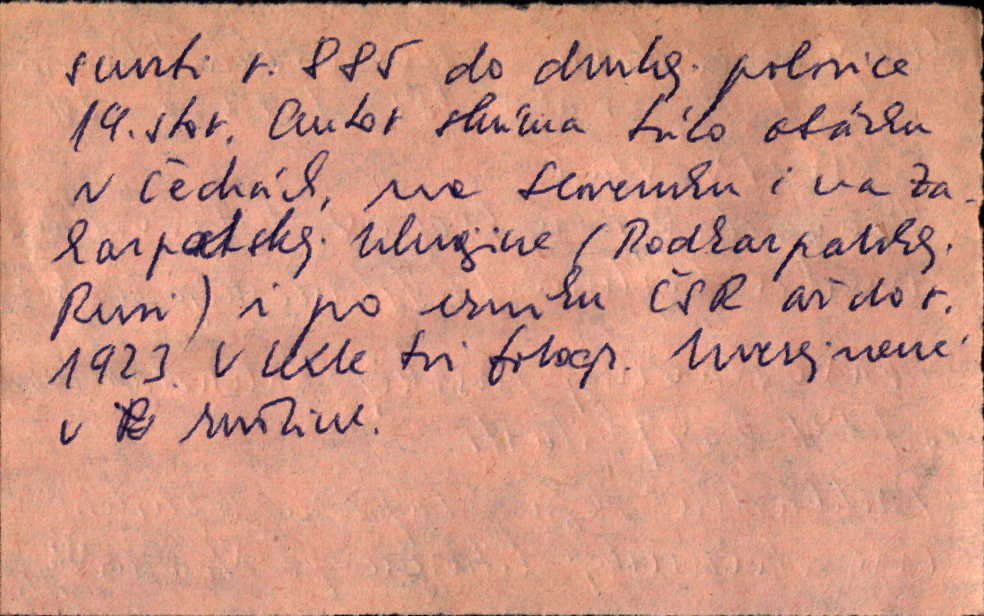 smrti r. 885 do druhej polovice
19. stor. Autor skúma túto otázku
v Čechách, na Slovensku i na Za-
karpatskej Ukrajine (Podkarpatskej
Rusi) i po vzniku ČSR až do r.
1923. V texte tri fotogr. Uverejnené
v ruštine.